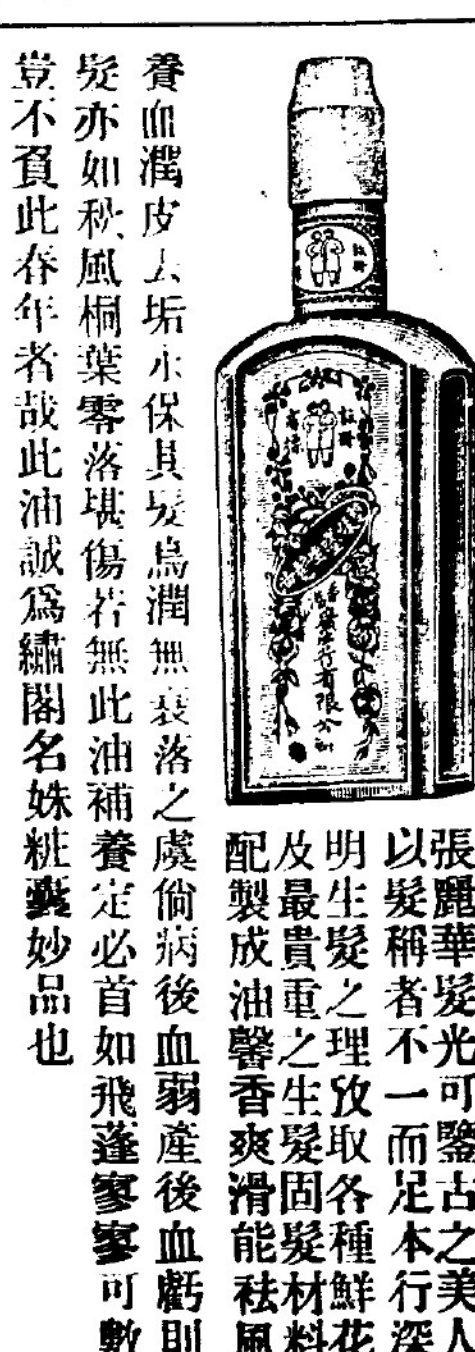 註冊
註冊
商標
廣生行有限公司
張麗華髮光可鑒古之美人
以髮稱者不一而足本行深
明生髮之理攷取各種鮮花
及最貴重之生髮固髮材料
配製成油馨香爽滑能袪風
養血潤皮去垢永保其髮烏潤無衰落之虞倘病後血弱產後血虧則
髮亦如秋風桐葉零落堪傷若無此油補養定必首如飛蓬寥寥可數
豈不負此春年者哉此油誠爲繡閣名姝粧妙品也